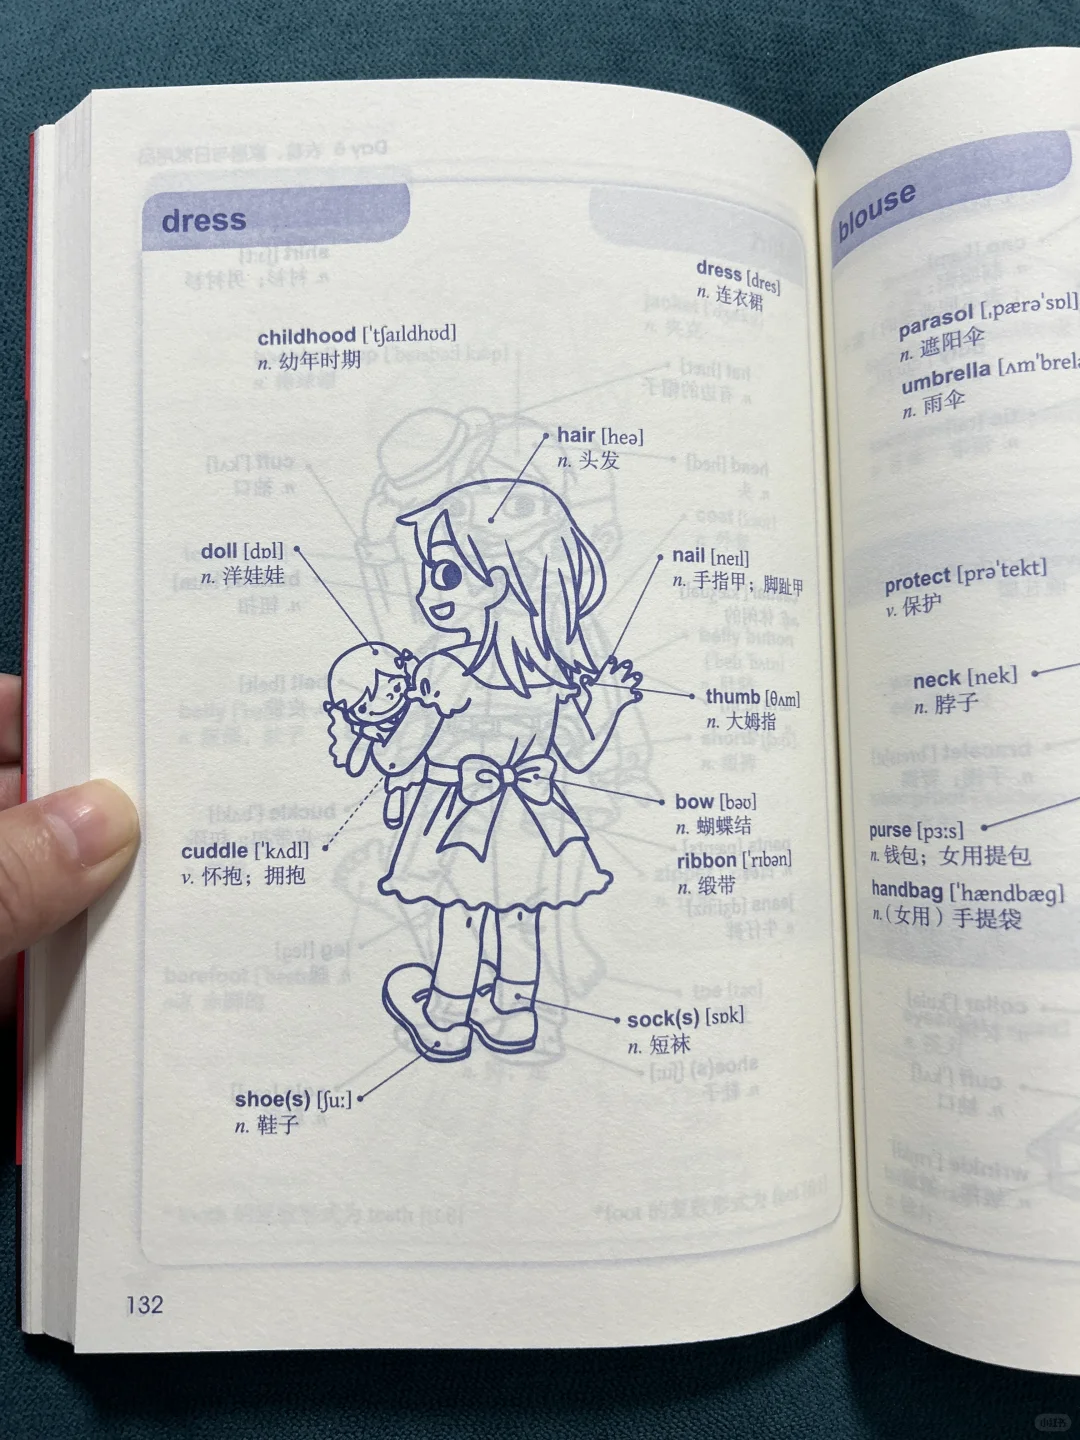 dress
dress [dres]
n. 连衣裙
childhood [ˈtʃaɪldhʊd]
n. 幼年时期
hair [heə]
n. 头发
doll [dɒl]
n. 洋娃娃
nail [neɪl]
n. 手指甲；脚趾甲
thumb [θʌm]
n. 大姆指
bow [bəʊ]
n. 蝴蝶结
cuddle [ˈkʌdl]
v. 怀抱；拥抱
ribbon [ˈrɪbən]
n. 缎带
sock(s) [sɒk]
n. 短袜
shoe(s) [ʃuː]
n. 鞋子
132
blouse
parasol [ˌpærəˈsɒl]
n. 遮阳伞
umbrella [ʌmˈbrelə
n. 雨伞
protect [prəˈtekt]
v. 保护
neck [nek]
n. 脖子
purse [pɜːs]
n. 钱包；女用提包
handbag [ˈhændbæg]
n.（女用）手提袋
小红书